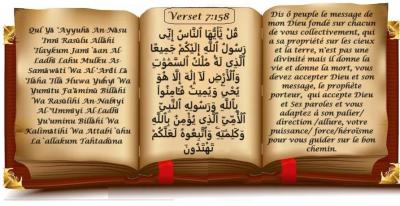 Verset 7:158
Qul Yā 'Ayyuhā An-Nāsu
'Innī Rasūlu Allāhi
'Ilaykum Jamī`āan Al-
Ladhī Lahu Mulku As-
Samāwāti Wa Al-'Arđi Lā
'Ilāha 'Illā Huwa Yuĥyī Wa
Yumītu Fa'āminū Billāhi
Wa Rasūlihi An-Nabīyi
Al-'Ummīyi Al-Ladhī
Yu'uminu Billāhi Wa
Kalimātihi Wa Attabi`ūhu
La`allakum Tahtadūna
قُلْ يَٰٓأَيُّهَا ٱلنَّاسُ إِنِّى
رَسُولُ ٱللَّهِ إِلَيْكُمْ جَمِيعًا
ٱلَّذِى لَهُۥ مُلْكُ ٱلسَّمَٰوَٰتِ
وَٱلْأَرْضِ لَآ إِلَٰهَ إِلَّا هُوَ
يُحْىِۦ وَيُمِيتُ فَـَٔامِنُوا۟
بِٱللَّهِ وَرَسُولِهِ ٱلنَّبِىِّ
ٱلْأُمِّىِّ ٱلَّذِى يُؤْمِنُ بِٱللَّهِ
وَكَلِمَٰتِهِۦ وَٱتَّبِعُوهُ لَعَلَّكُمْ
تَهْتَدُونَ
Dis ô peuple le message de
mon Dieu fondé sur chacun
de vous collectivement, qui
a sa propriété sur les cieux
et la terre, n'est pas une
divinité mais il donne la
vie et donne la mort, vous
devez accepter Dieu et son
message, le prophète
porteur, qui accepte Dieu
et Ses paroles et vous
adaptez à son palier/
direction /allure, votre
puissance/ force/héroïsme
pour vous guider sur le bon
chemin.